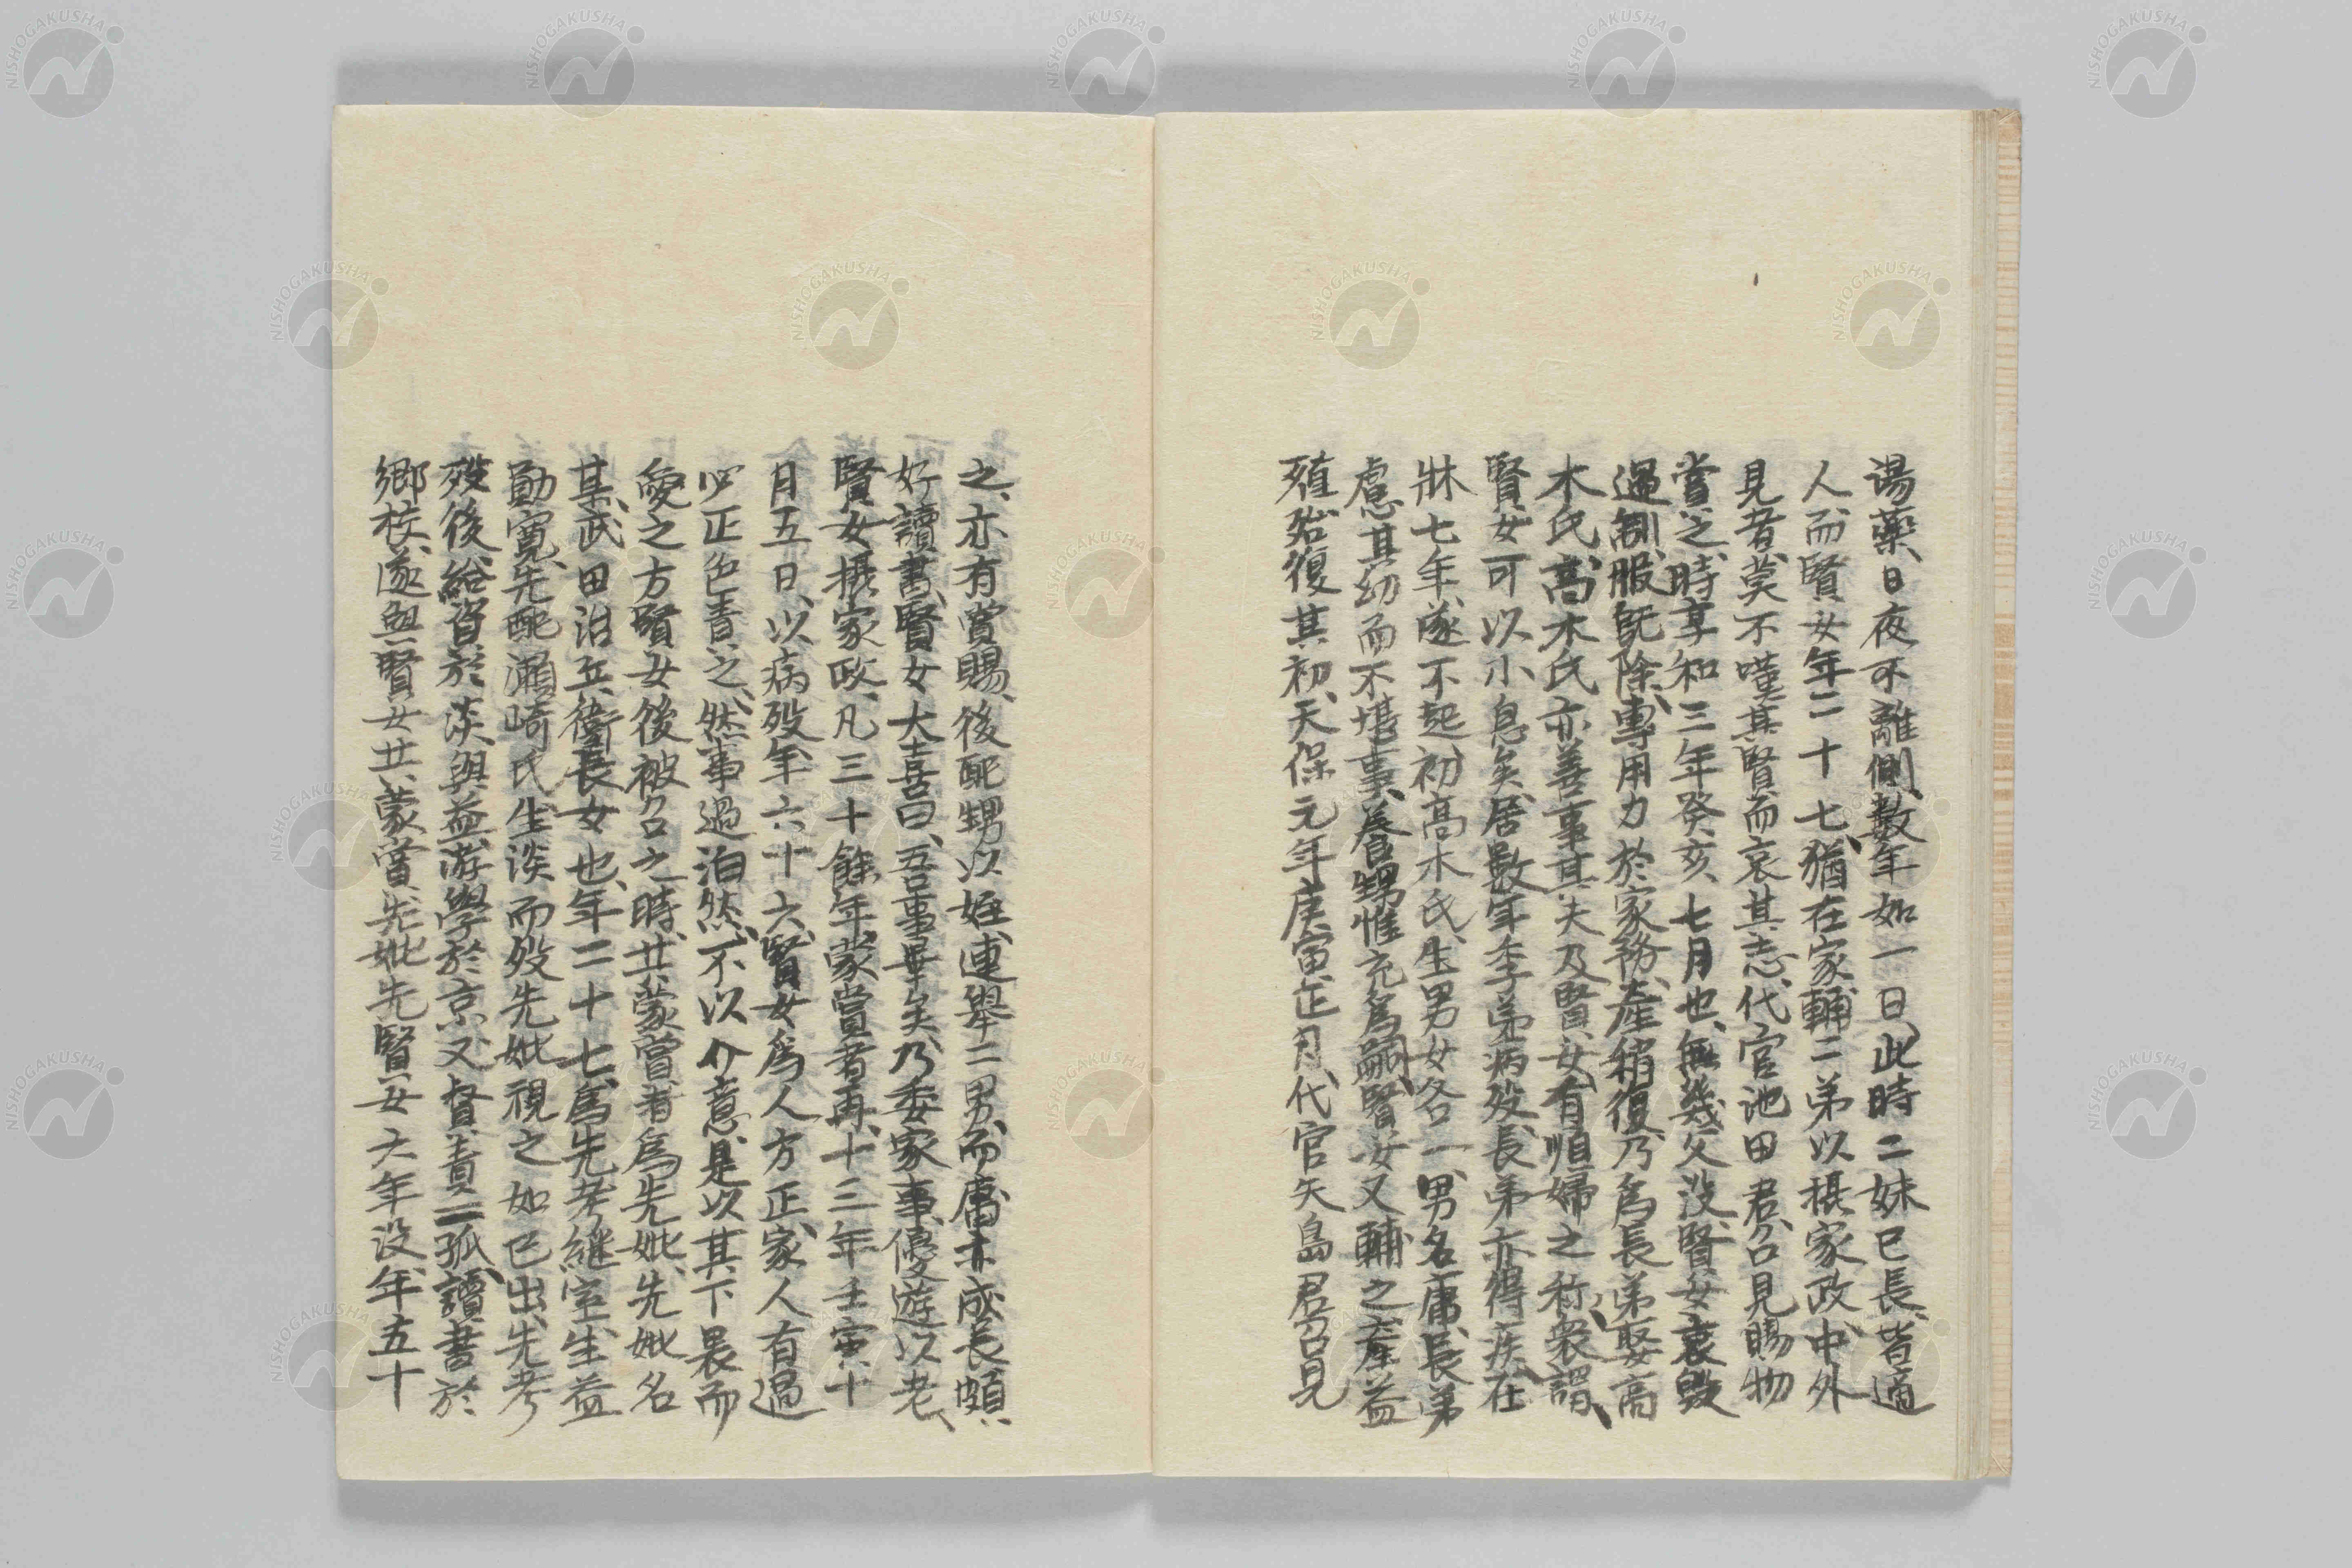 湯藥、日夜不離側、數年如一日、此時二妹已長、皆適
人、而賢女年二十七、猶在家輔二弟以摂家政、中外
見者、莫不嘆其賢、而哀其志、代官池田君、召見賜物
賞之、時享和三年癸亥七月也、無幾父没、賢女哀毀
過制、服既除、專用力於家務、產稍復、乃爲長弟娶高
木氏、高木氏亦善事其夫及賢女、有順婦之称、衆謂、
賢女可以小息矣、居數年季弟病歿、長弟亦得疾、在
牀七年、遂不起、初高木氏、生男女各一、男名庸、長弟
慮其幼而不堪事、養甥惟充爲嗣、賢女又輔之、產益
殖、殆復其初、天保元年庚寅正月、代官矢島君召見
之、亦有賞賜、後配甥以姪、連擧二男、而庸亦成長、頗
好讀書、賢女大喜曰、吾事畢矣、乃委家事、優遊以老、
賢女摂家政、凡三十餘年、蒙賞者再、十三年壬寅十
月五日、以病歿、年六十六、賢女爲人方正、家人有過
必正色責之、然事過泊然、不以介意、是以其下畏而
愛之、方賢女後被召之時、共蒙賞者爲先妣、先妣名
某、武田治五衛長女也、年二十七、爲先考継室、生益
勛寛、先配瀬崎氏、生淡而歿、先妣視之如己出、先考
歿後、給資於淡與益、游學於京、又督責二孤、讀書於
鄉校、遂與賢女共蒙賞、先妣先賢女六年没、年五十